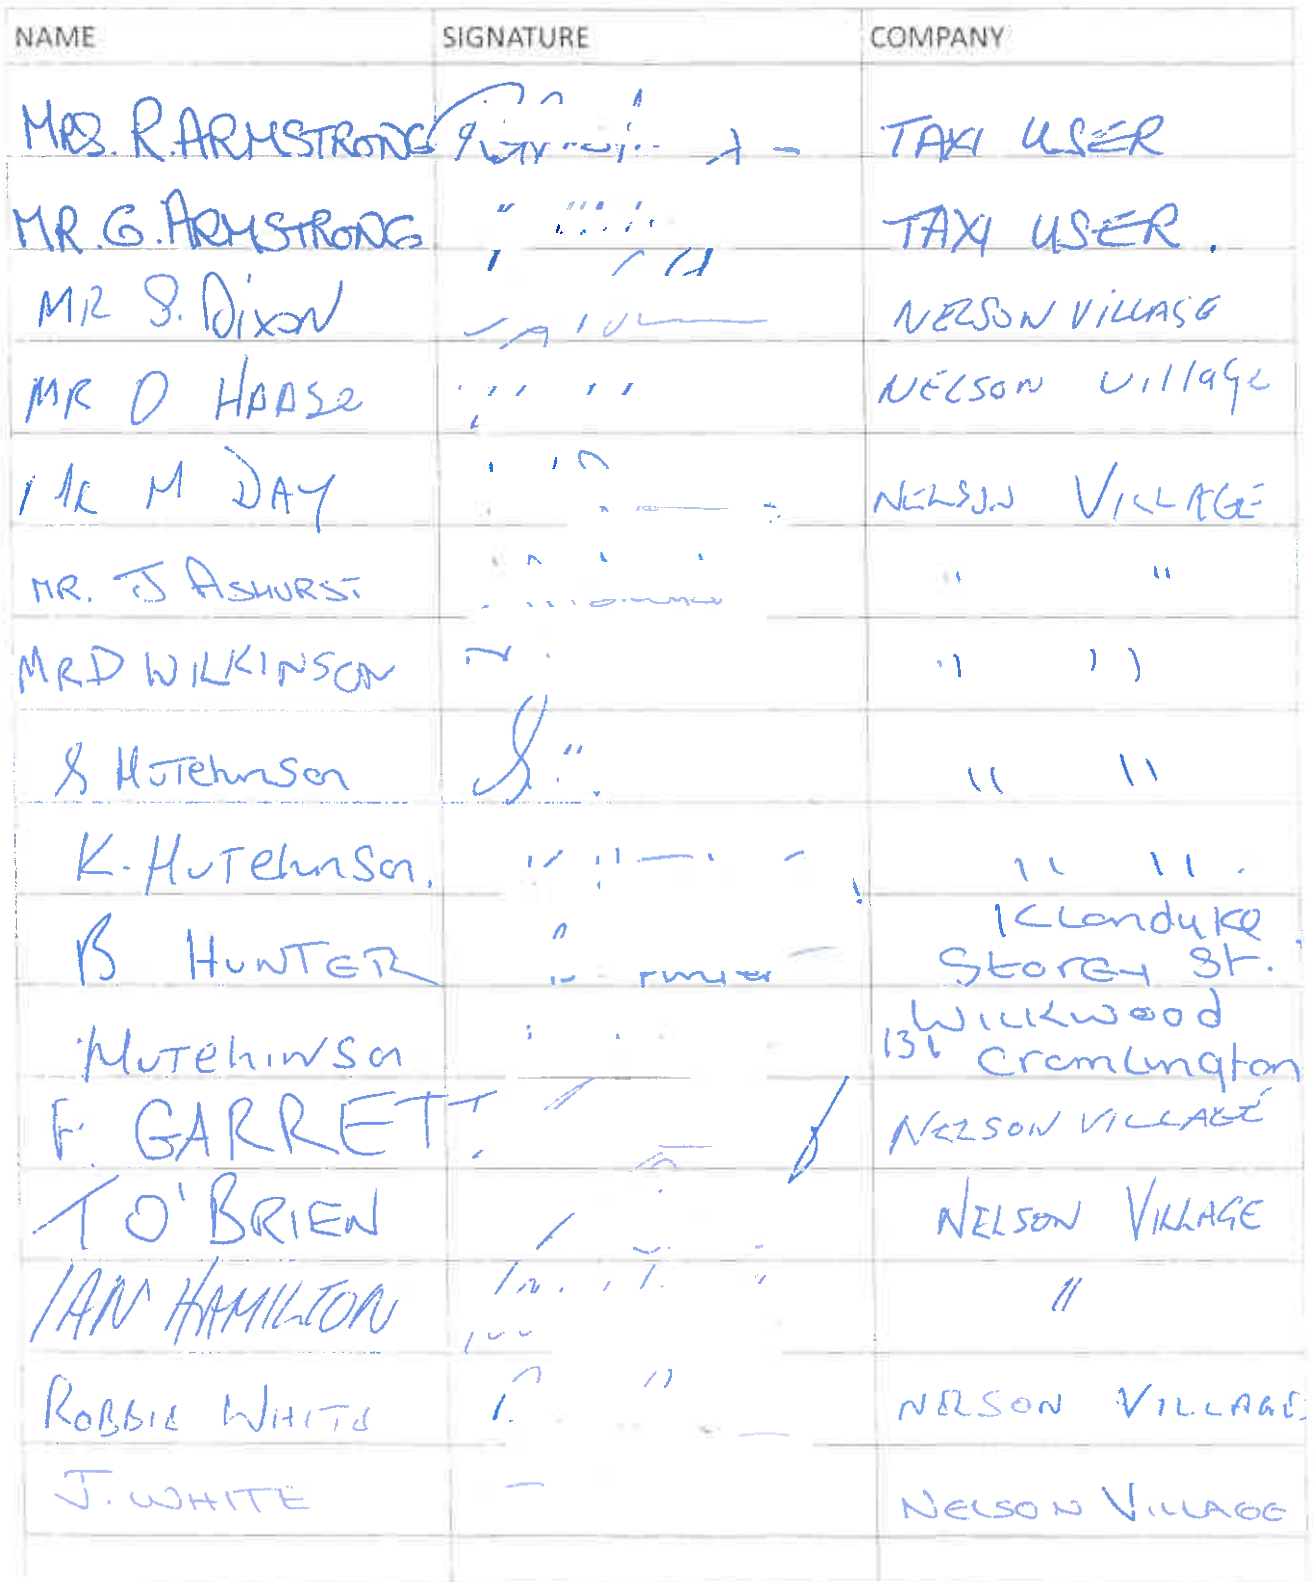 NAME SIGNATURE COMPANY
MRS. R. ARMSTRONG TAXI USER
MR. G. ARMSTRONG TAXI USER.
MR S. Dixon NELSON VILLAGE
MR D HAASE NELSON Village
MR M DAY NELSON VILLAGE
MR. J ASHURST " "
MR D WILKINSON " "
S HUTchinson " "
K. HUTchinson. " ".
B HUNTER Klondyke
Storey St.
HUTchinson 131 Wilkwood
Cramlington
F. GARRETT. NELSON VILLAGE
T O'BRIEN NELSON VILLAGE
IAN HAMILTON "
ROBBIE WHITE NELSON VILLAGE
J. WHITE NELSON VILLAGE